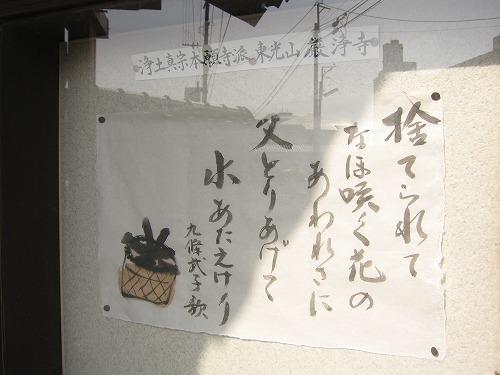 浄土真宗本願寺派 東光山 巌浄寺
捨てられて
なほ咲く花の
あわれさに
又とりあげて
水あたえけり
九條武子歌